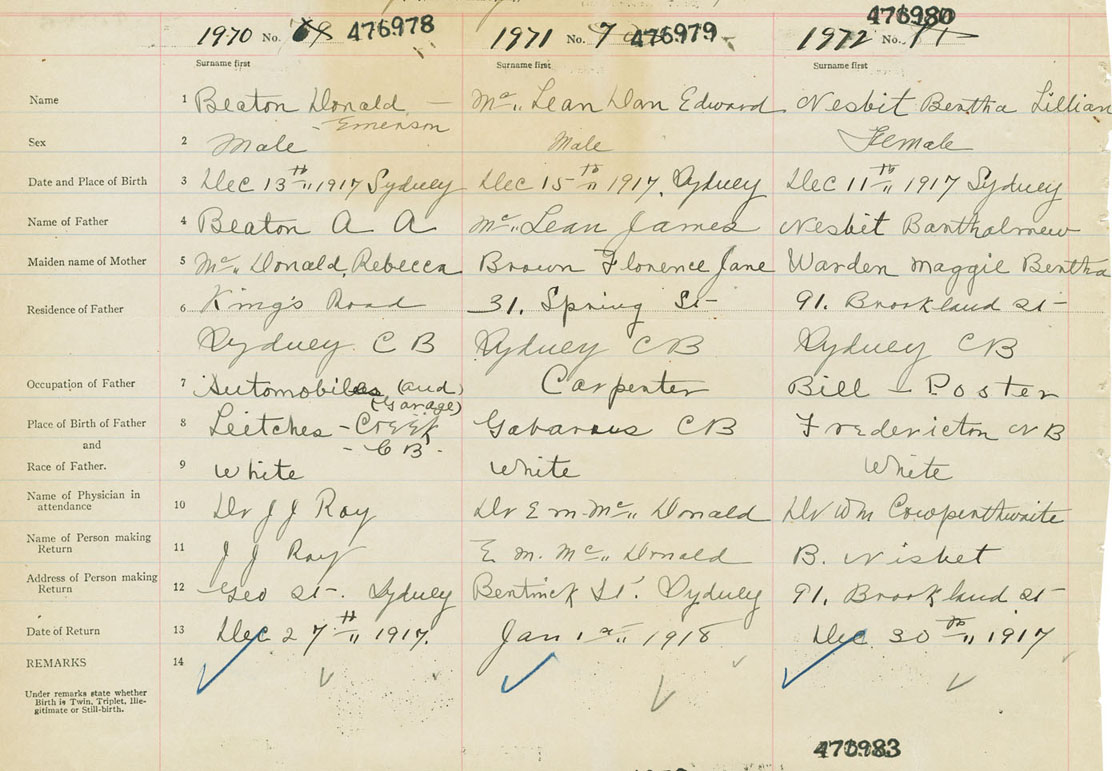 1970 No. 69 476978 1971 No. 7 476979 1972 No. 476980
Surname first Surname first Surname first
Name 1 Beaton Donald – Mc„ Lean Dan Edward Nesbit Bertha Lillian
- Emerson
Sex 2 Male Male Female
Date and Place of Birth 3 Dec 13th„ 1917 Sydney Dec 15th„ 1917, Sydney Dec 11th„ 1917 Sydney
Name of Father 4 Beaton A A Mc„ Lean James Nesbit Bartholmew
Maiden name of Mother 5 Mc„ Donald, Rebecca Brown Florence Jane Warden Maggie Bertha
Residence of Father 6 King's Road 31. Spring St– 91. Brookland St–
Sydney C B Sydney CB Sydney CB
Occupation of Father 7 Automobiles (and Carpenter Bill – Poster
(Garage)
Place of Birth of Father 8 Leitches – Creek Gabarus CB Fredericton NB
and - C B -
Race of Father. 9 White White White
Name of Physician in
attendance 10 Dr J J Roy Dr E m Mc„ Donald Dr Wm Cowpenthwaite
Name of Person making
Return 11 J J Roy E. m. Mc„ Donald B. Nisbet
Address of Person making
Return 12 Geo St–. Sydney Bentinck St. Sydney 91. Brookland St–
Date of Return 13 Dec 27th„ 1917. Jan 1st„ 1918 Dec 30th„ 1917
REMARKS 14
Under remarks state whether
Birth is Twin, Triplet, Ille-
gitimate or Still-birth.
476983